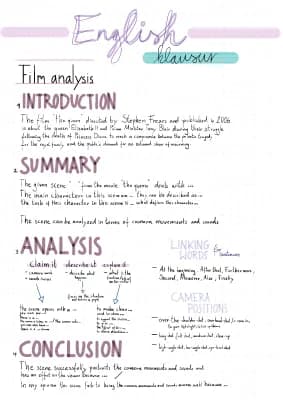 English
klausur
Film analysis
1. INTRODUCTION
The film "the queen" directed by Stephen Frears and published in 2006
is about the queen Elizabeth II and Prime Minister Tony Blair during their struggle
following the death of Princess Diana, to reach a compromise between the private tragedy
for the royal family, and the public's demand for an outward show of mourning.
2. SUMMARY
The given scene "..." from the movie "the queen" deals with ...
The main characters in this scene are ... They can be described as ...
The task of this character in this scene is ...
The scene can be analyzed in terms of camera movements and sounds
3. ANALYSIS
claim it
describe it
explain it
- camera work
- describe what happens
- what is the
the scene opens with a ...
to make clear
LINKING WORDS
for sentences
- At the beginning, After that, Furthermore,
Second, Moreover, Also, Finally
CAMERA POSITIONS
- over-the-shoulder shot
- long shot, full shot, medium shot, close-up
- high-angle shot, low-angle shot, eye-level shot
4. CONCLUSION
The scene successfully portrays the camera movements and sounds and
has an effect on the viewer because ...
In my opinion the scene fails to bring the camera movements and sounds across well because ...